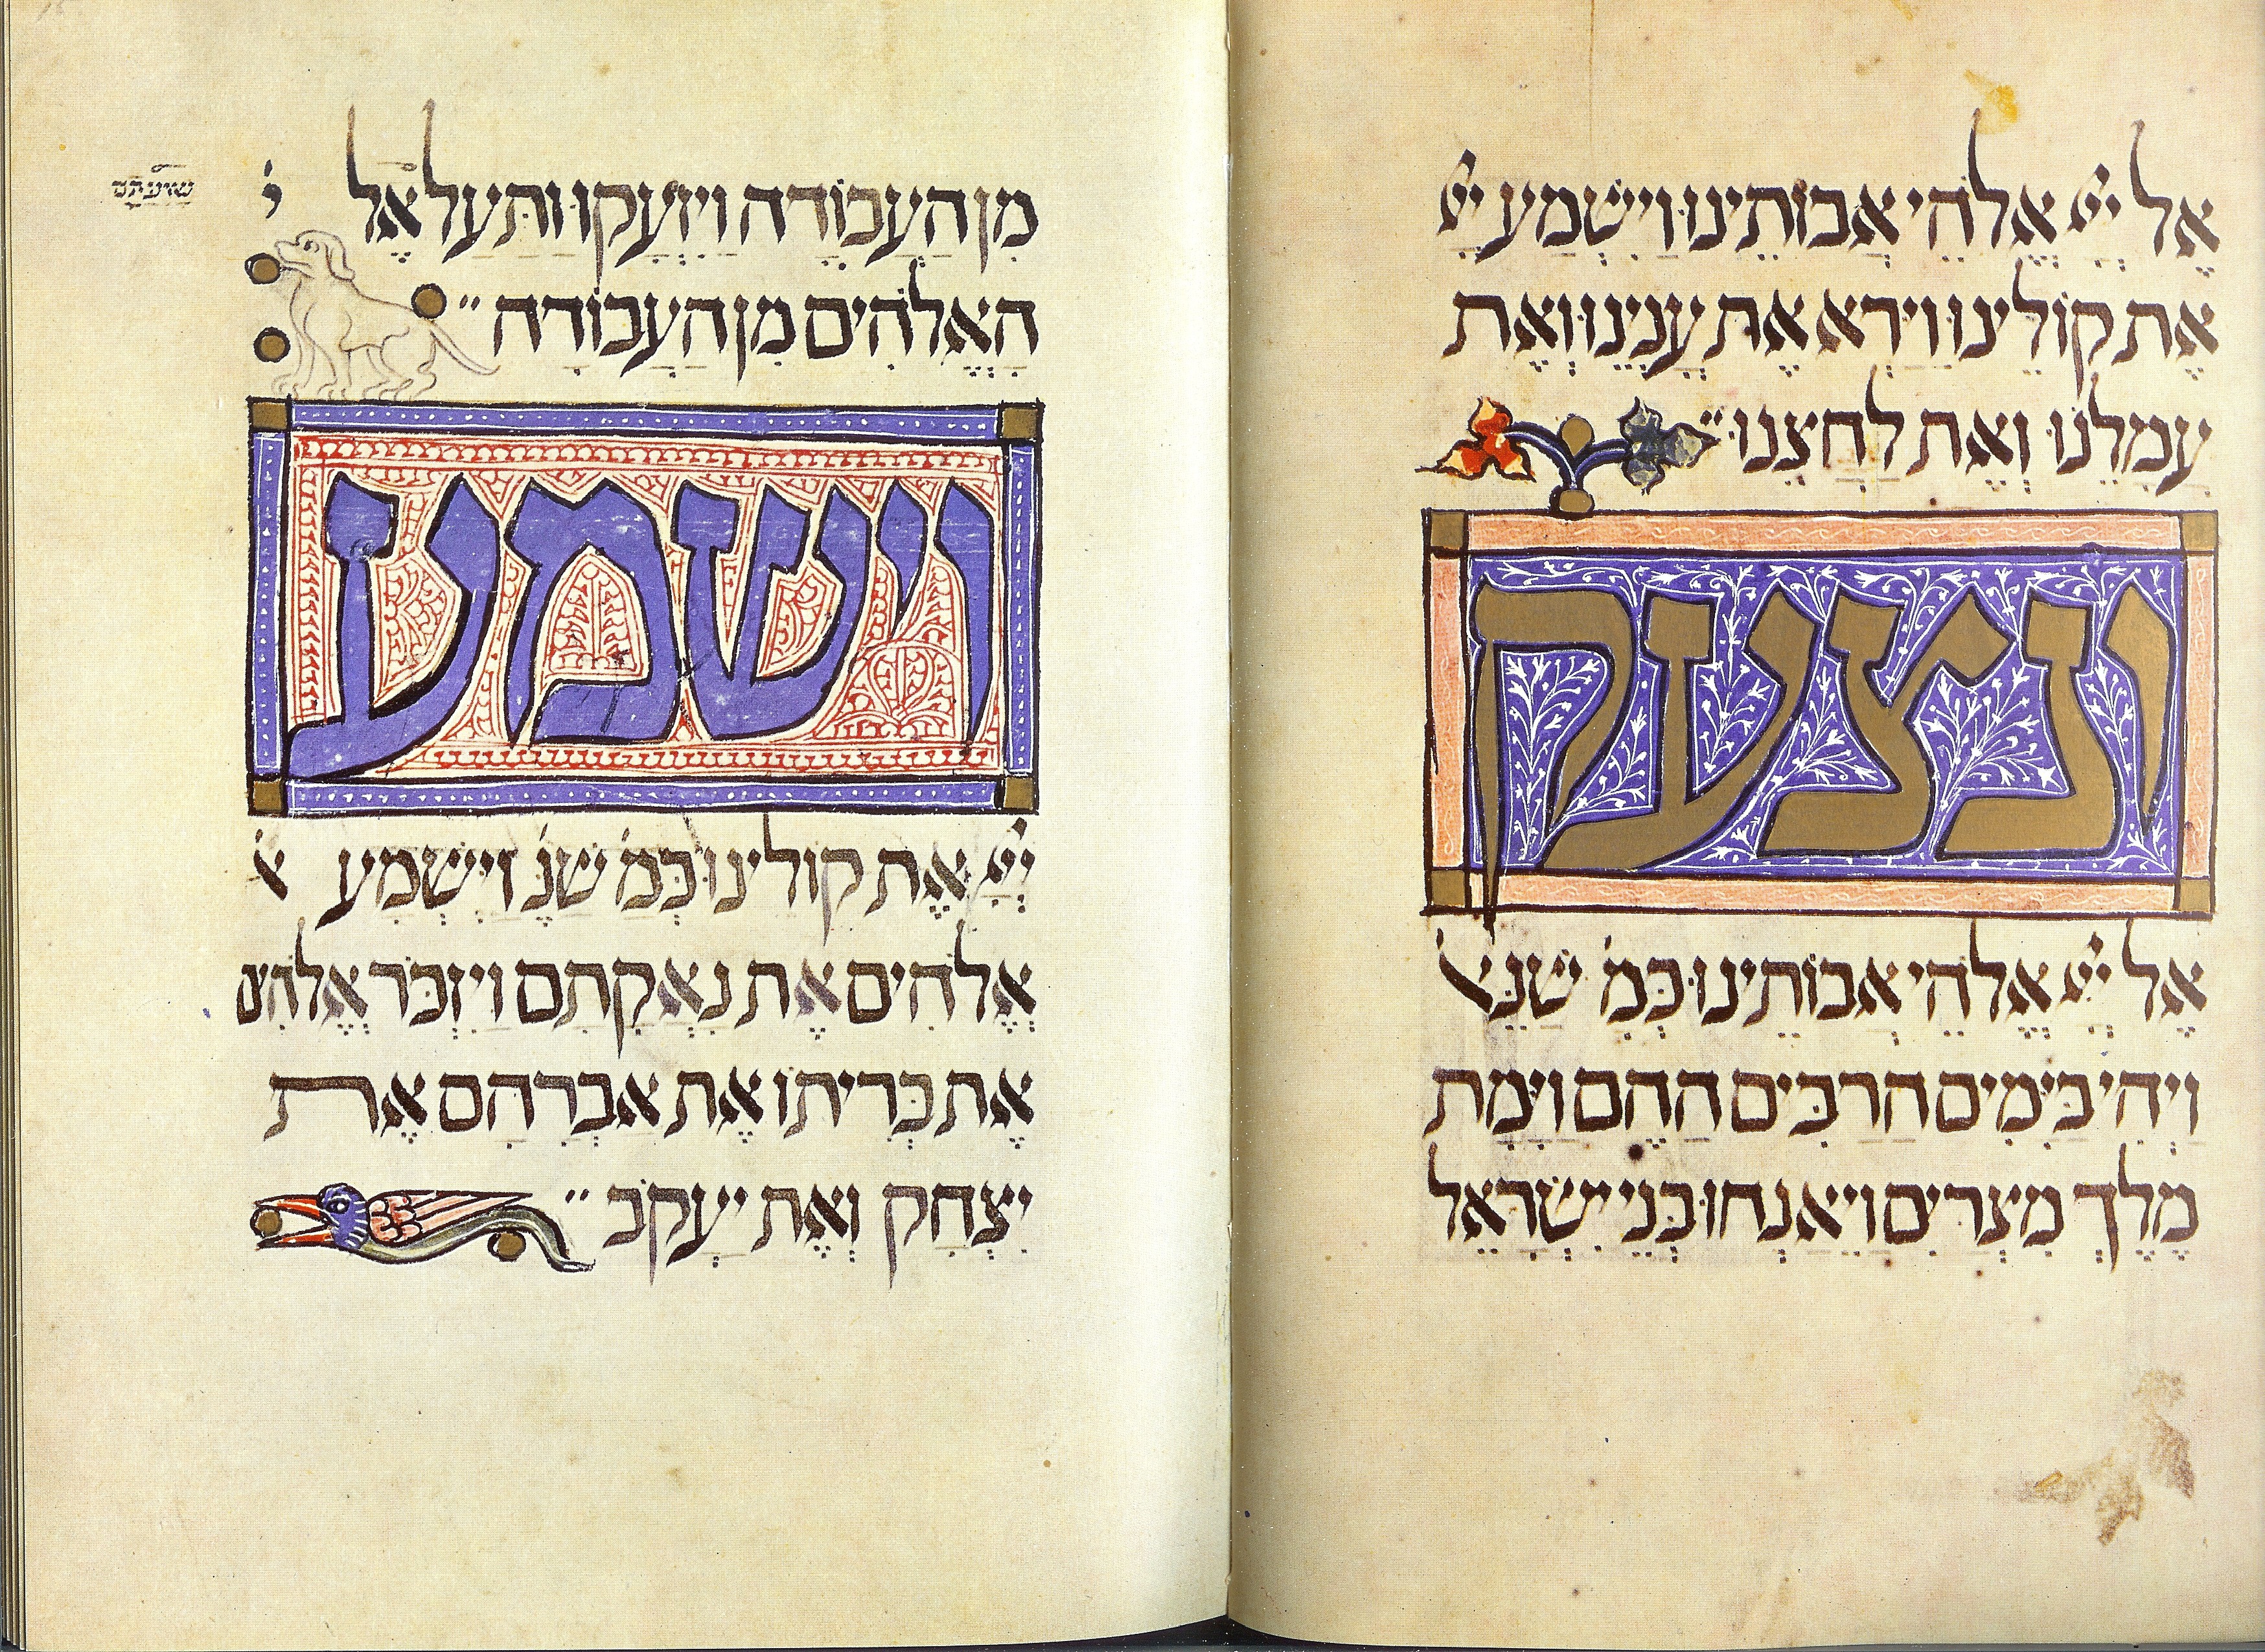 אֶל יְיָ אֱלֹהֵי אֲבוֹתֵינוּ וַיִשְׁמַע יְיָ
אֶת קוֹלֵינוּ וַיַרְא אֶת עֳנְיֵנוּ וְאֶת
עֲמָלֵנוּ וְאֶת לַחֲצֵנוּ״
ונצעק
אֶל יְיָ אֱלֹהֵי אֲבוֹתֵינוּ כְּמָ שֶׁנֶּאֱ
וַיְהִי בַיָּמִים הָרַבִּים הָהֵם וַיָּמָת
מֶלֶךְ מִצְרַיִם וַיֵּאָנְחוּ בְּנֵי יִשְׂרָאֵל
מִן הָעֲבוֹדָה וַיִזְעָקוּ וַתַּעַל אֶל י
שַׁוְעָתָם
הָאֱלֹהִים מִן הָעֲבוֹדָה״
וישמע
יְיָ אֶת קולינו כְּמָ שֶׁנֶּ וַיִּשְׁמַע א
אֱלֹהִים אֶת נַאֲקָתָם וַיִּזְכֹּר אֱלֹהִים
אֶת בְּרִיתוֹ אֶת אַבְרָהָם אֶת
יִצְחָק וְאֶת יַעֲקֹב״